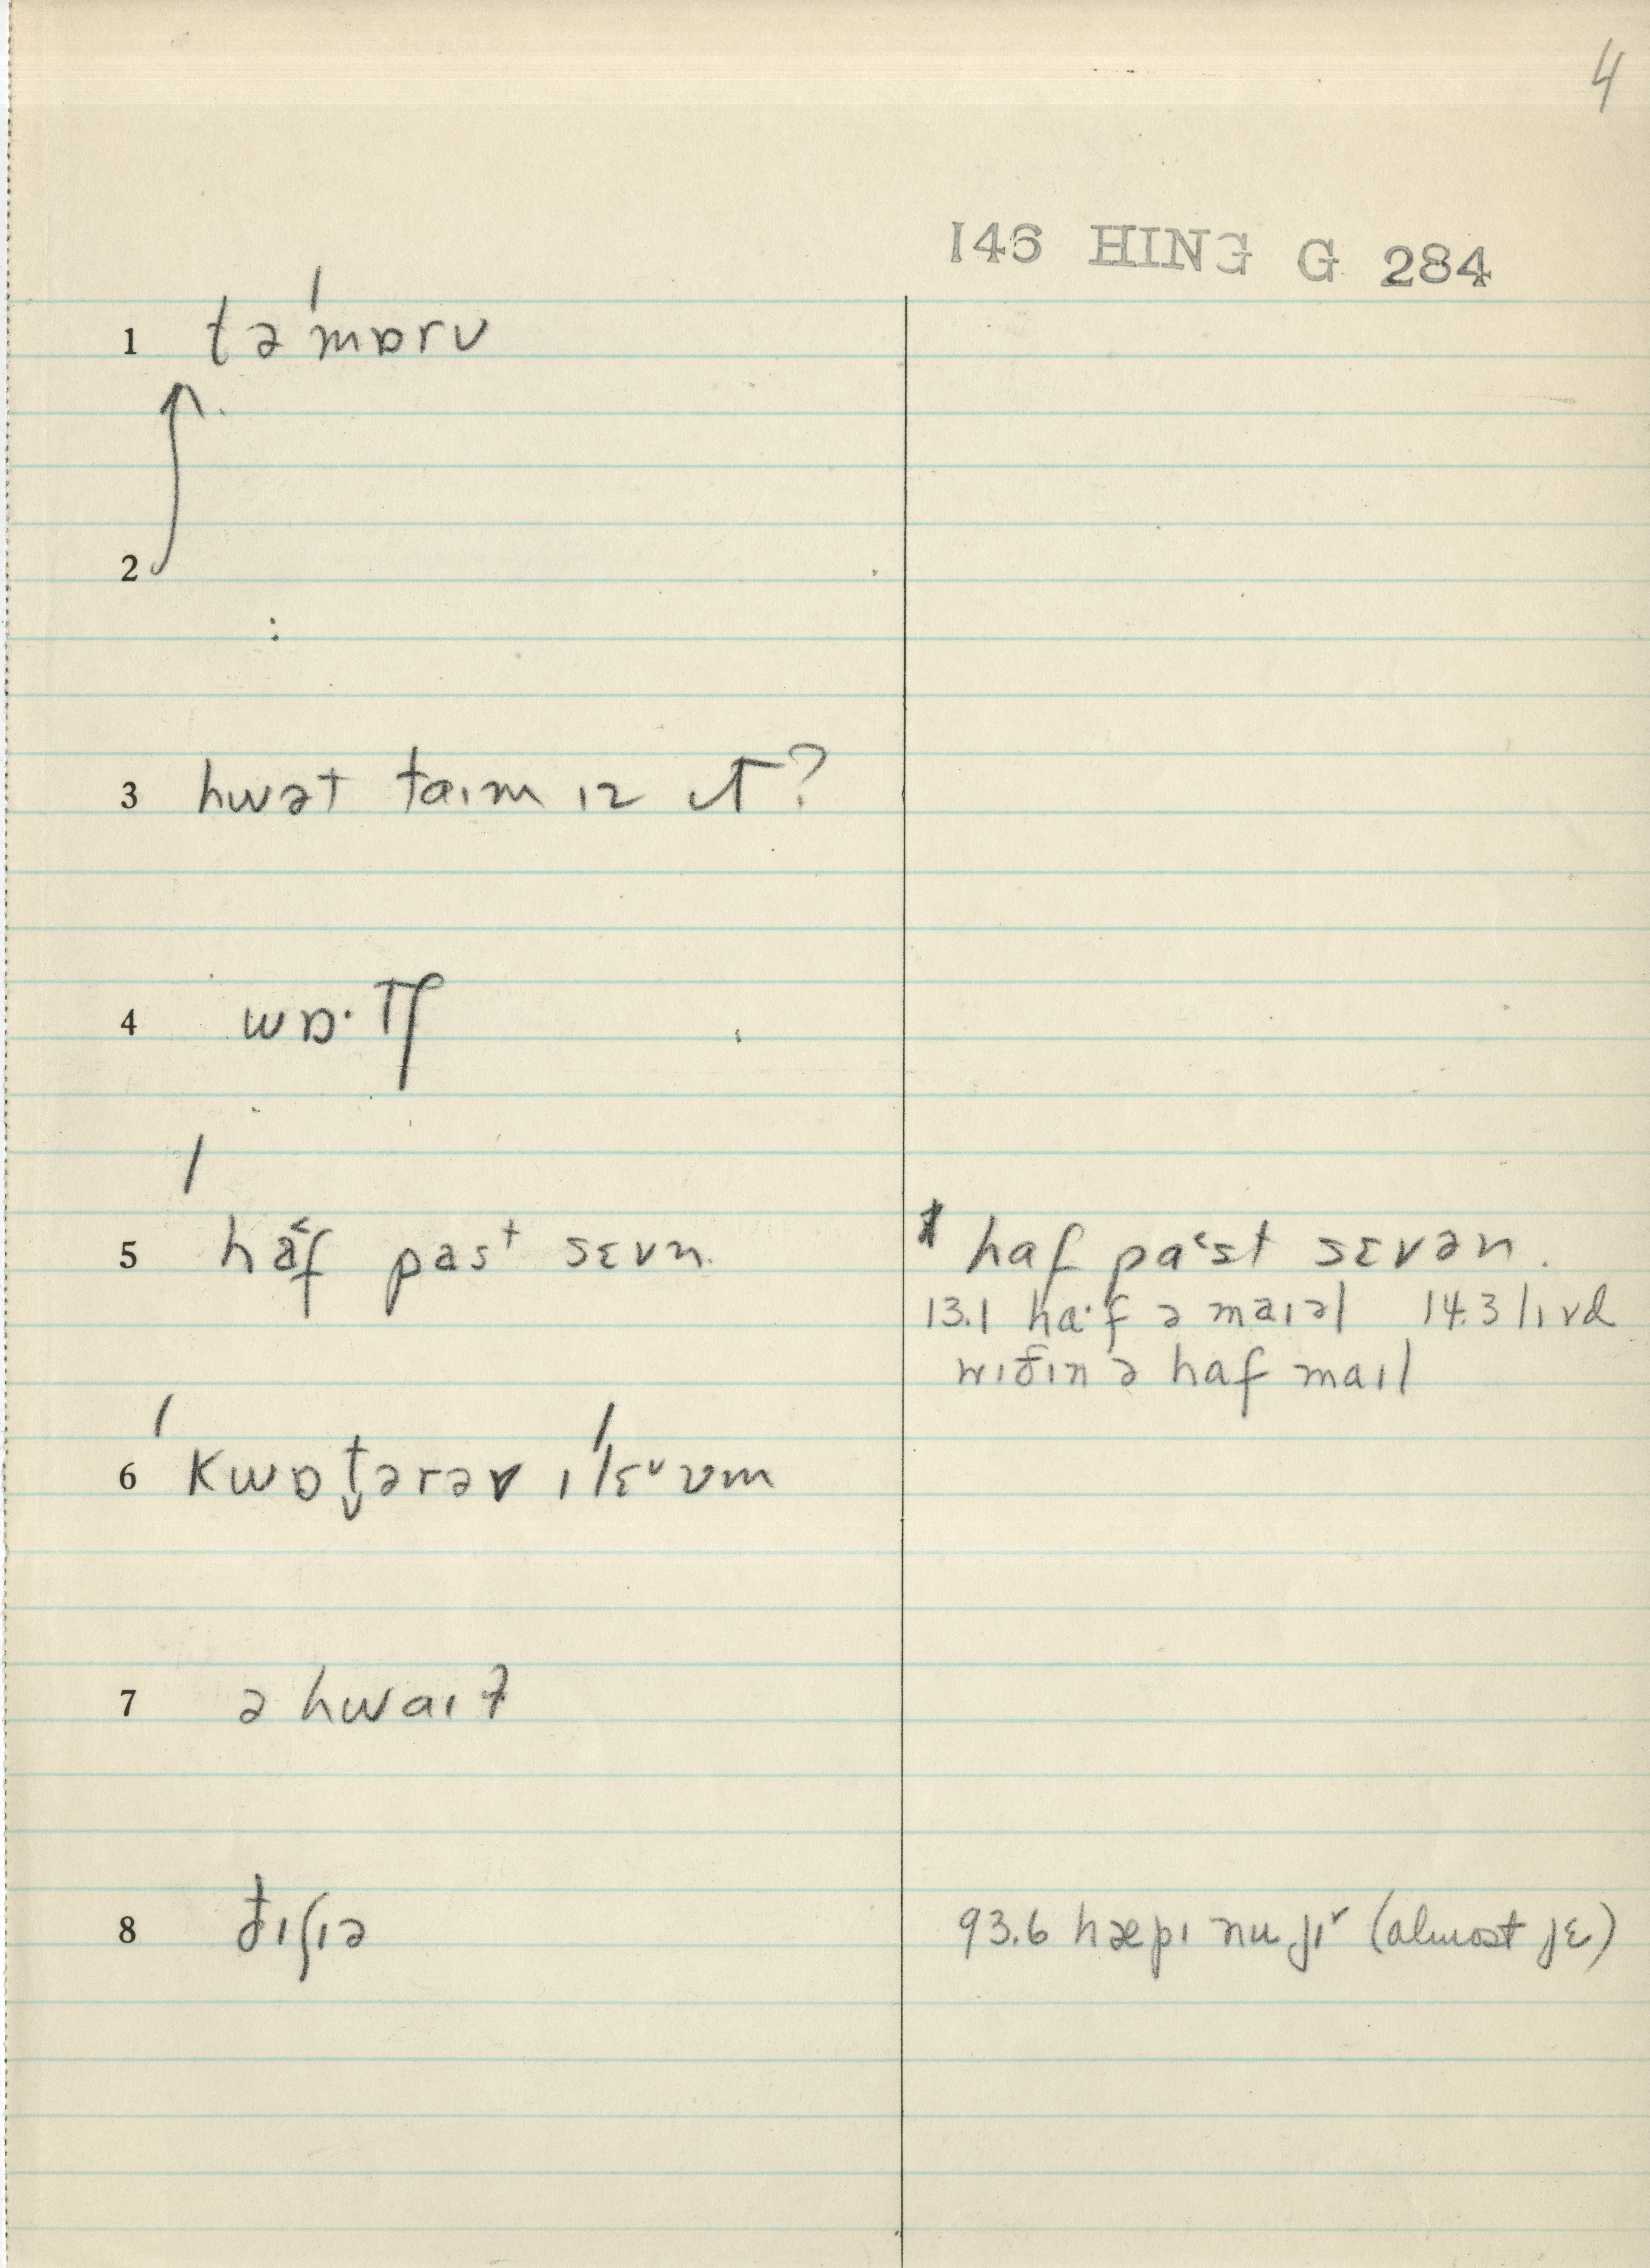 4
146 HING G 284
1 tə'mɒrʊ
2
3 hwət taɪm ɪz ɪt?
4 wɒ·tʃ
5 'haˤf past sɛvn.
haf paˤst sɛvən.
13.1 ha·f ə maɪəl 14.3 lɪvd
wɪðɪn ə haf maɪl
6 'kwɒt̬ərəv ɪ'lɛᵛvm
7 ə hwaɪɫ
8 ðɪʃɪə
93.6 hæpɪ nu jɪ˅ (almost jɛ)